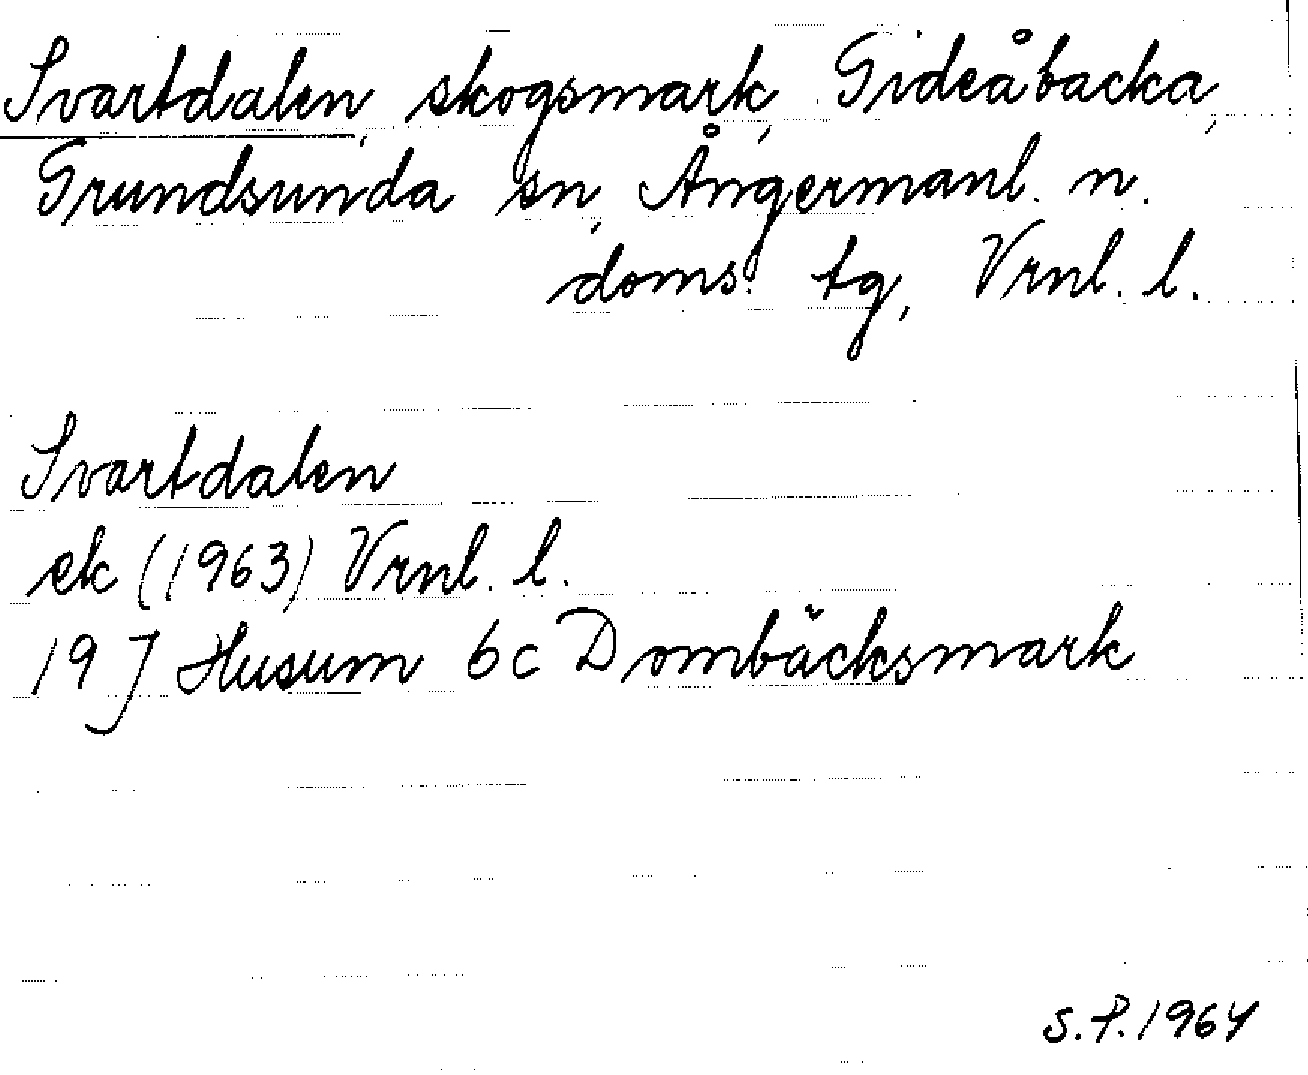 Svartdalen, skogsmark, Gideåbacka,
Grundsunda sn, Ångermanl. n.
doms. tg, Vrnl. l.
Svartdalen
ek (1963) Vrnl. l.
19 J Husum 6c Dombäcksmark
S.P. 1964